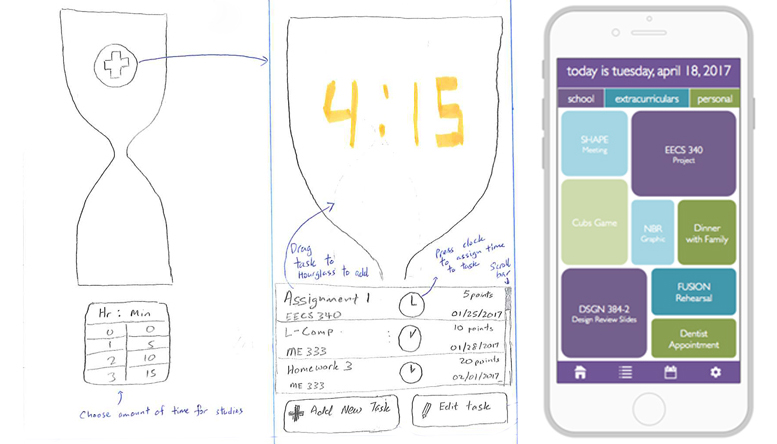 Hr : Min
0 0
1 5
2 10
3 15
Choose amount of time for studies
4:15
Drag
task to
Hourglass to add
Press clock
to assign time
to task
Scroll
bar
Assignment 1 5 points
EECS 340 01/25/2017
L-Comp 10 points
ME 333 01/28/2017
Homework 3 20 points
ME 333 02/01/2017
Add New Task
Edit task
today is tuesday, april 18, 2017
school extracurriculars personal
SHAPE
Meeting
EECS 340
Project
Cubs Game
NBR
Graphic
Dinner
with Family
DSGN 384-2
Design Review Slides
FUSION
Rehearsal
Dentist
Appointment